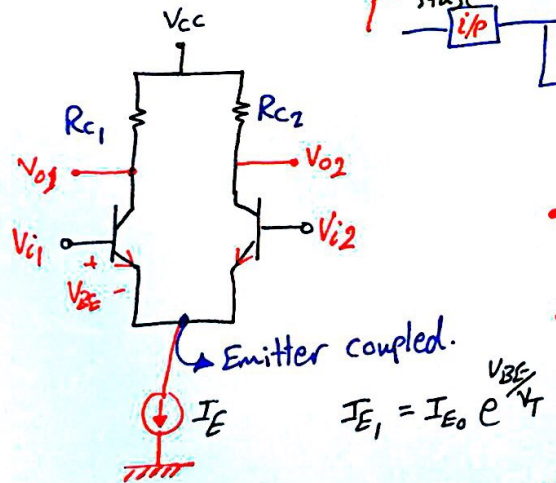 Vcc
i/p
Rc1
Rc2
Vo1
Vo2
Vi1
Vi2
+
VBE -
Emitter coupled.
IE
IE1 = IEo e^VBE/VT